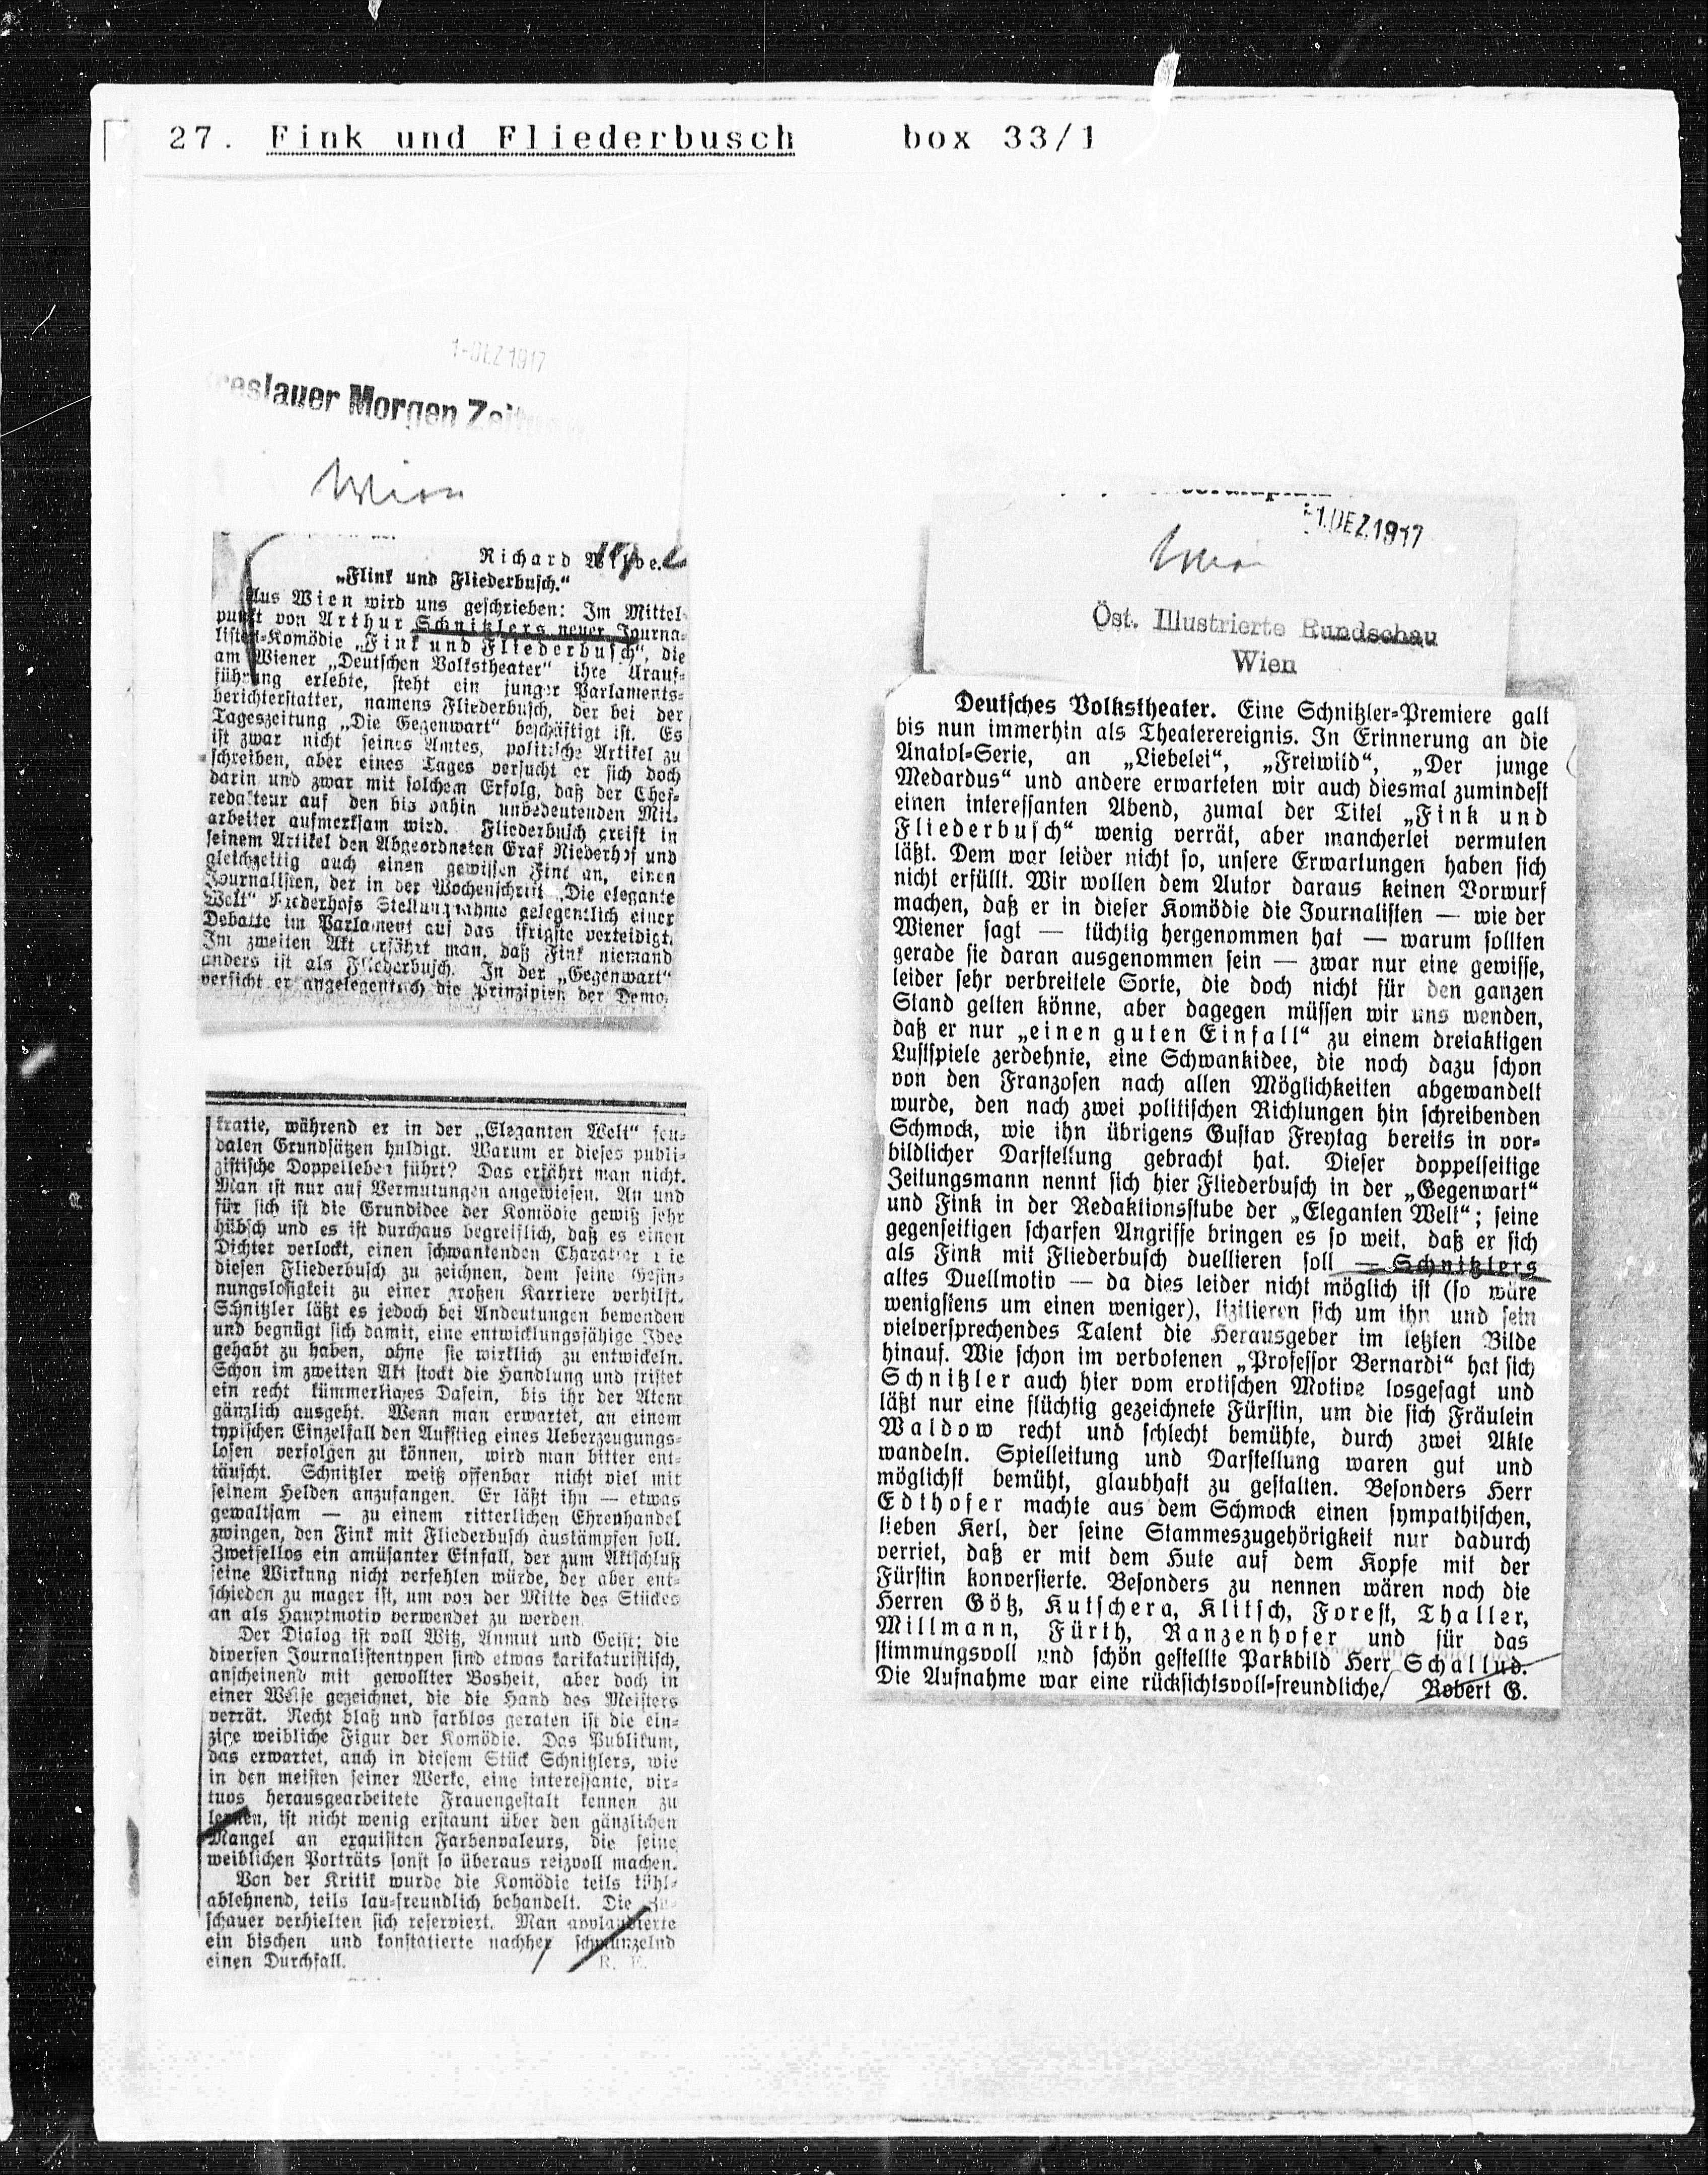 27. Fink und Fliederbusch box 33/1
1-DEZ 1917
reslauer Morgen Zeitun
Wien
Richard
„Flink und Fliederbusch.“
Aus Wien wird uns geschrieben: Im Mittel-
punkt von Arthur Schnitzlers neuer Journa-
listen-Komödie „Fink und Fliederbusch“, die
am Wiener „Deutschen Volkstheater“ ihre Urauf-
führung erlebte, steht ein junger Parlaments-
berichterstatter, namens Fliederbusch, der bei der
Tageszeitung „Die Gegenwart“ beschäftigt ist. Es
ist zwar nicht seines Amtes, politische Artikel zu
schreiben, aber eines Tages versucht er sich doch
darin und zwar mit solchem Erfolg, daß der Chef-
redakteur auf den bis dahin unbedeutenden Mit-
arbeiter aufmerksam wird. Fliederbusch greift in
seinem Artikel den Abgeordneten Graf Niederhof und
gleichzeitig auch einen gewissen Fink an, einen
Journalisten, der in der Wochenschrift „Die elegante
Welt“ Niederhofs Stellungnahme gelegentlich einer
Debatte im Parlament auf das ifrigste verteidigt.
Im zweiten Akt erfährt man, daß Fink niemand
anders ist als Fliederbusch. In der „Gegenwart“
verficht er angelegentlich die Prinzipien der Demo-
kratie, während er in der „Eleganten Welt“ feu-
dalen Grundsätzen huldigt. Warum er dieses publi-
zistische Doppelleben führt? Das erfährt man nicht.
Man ist nur auf Vermutungen angewiesen. An und
für sich ist die Grundidee der Komödie gewiß sehr
hübsch und es ist durchaus begreiflich, daß es einen
Dichter verlockt, einen schwankenden Charakter wie
diesen Fliederbusch zu zeichnen, dem seine Gesin-
nungslosigkeit zu einer großen Karriere verhilft.
Schnitzler läßt es jedoch bei Andeutungen bewenden
und begnügt sich damit, eine entwicklungsfähige Idee
gehabt zu haben, ohne sie wirklich zu entwickeln.
Schon im zweiten Akt stockt die Handlung und fristet
ein recht kümmerliches Dasein, bis ihr der Atem
gänzlich ausgeht. Wenn man erwartet, an einem
typischen Einzelfall den Aufstieg eines Ueberzeugungs-
losen verfolgen zu können, wird man bitter ent-
täuscht. Schnitzler weiß offenbar nicht viel mit
seinem Helden anzufangen. Er läßt ihn — etwas
gewaltsam — zu einem ritterlichen Ehrenhandel
zwingen, den Fink mit Fliederbusch auskämpfen soll.
Zweifellos ein amüsanter Einfall, der zum Aktschluß
seine Wirkung nicht verfehlen würde, der aber ent-
schieden zu mager ist, um von der Mitte des Stückes
an als Hauptmotiv verwendet zu werden.
Der Dialog ist voll Witz, Anmut und Geist; die
diversen Journalistentypen sind etwas karikaturistisch,
anscheinend mit gewollter Bosheit, aber doch in
einer Weise gezeichnet, die die Hand des Meisters
verrät. Recht blaß und farblos geraten ist die ein-
zige weibliche Figur der Komödie. Das Publikum,
das erwartet, auch in diesem Stück Schnitzlers, wie
in den meisten seiner Werke, eine interessante, vir-
tuos herausgearbeitete Frauengestalt kennen zu
lernen, ist nicht wenig erstaunt über den gänzlichen
Mangel an exquisiten Farbenvaleurs, die seine
weiblichen Porträts sonst so überaus reizvoll machen.
Von der Kritik wurde die Komödie teils kühl-
ablehnend, teils lau-freundlich behandelt. Die Zu-
schauer verhielten sich reserviert. Man applaudierte
ein bischen und konstatierte nachher schmunzelnd
einen Durchfall. R. F.
-1. DEZ. 1917
Wien
Öst. Illustrierte Rundschau
Wien
Deutsches Volkstheater. Eine Schnitzler-Premiere galt
bis nun immerhin als Theaterereignis. In Erinnerung an die
Anatol-Serie, an „Liebelei“, „Freiwild“, „Der junge
Medardus“ und andere erwarteten wir auch diesmal zumindest
einen interessanten Abend, zumal der Titel „Fink und
Fliederbusch“ wenig verrät, aber mancherlei vermuten
läßt. Dem war leider nicht so, unsere Erwartungen haben sich
nicht erfüllt. Wir wollen dem Autor daraus keinen Vorwurf
machen, daß er in dieser Komödie die Journalisten — wie der
Wiener sagt — tüchtig hergenommen hat — warum sollten
gerade sie daran ausgenommen sein — zwar nur eine gewisse,
leider sehr verbreitete Sorte, die doch nicht für den ganzen
Stand gelten könne, aber dagegen müssen wir uns wenden,
daß er nur „einen guten Einfall“ zu einem dreiaktigen
Lustspiele zerdehnte, eine Schwankidee, die noch dazu schon
von den Franzosen nach allen Möglichkeiten abgewandelt
wurde, den nach zwei politischen Richtungen hin schreibenden
Schmock, wie ihn übrigens Gustav Freytag bereits in vor-
bildlicher Darstellung gebracht hat. Dieser doppelseitige
Zeitungsmann nennt sich hier Fliederbusch in der „Gegenwart“
und Fink in der Redaktionsstube der „Eleganten Welt“; seine
gegenseitigen scharfen Angriffe bringen es so weit, daß er sich
als Fink mit Fliederbusch duellieren soll — Schnitzlers
altes Duellmotiv — da dies leider nicht möglich ist (so wäre
wenigstens um einen weniger), lizitieren sich um ihn und sein
vielversprechendes Talent die Herausgeber im letzten Bilde
hinauf. Wie schon im verbotenen „Professor Bernardi“ hat sich
Schnitzler auch hier vom erotischen Motive losgesagt und
läßt nur eine flüchtig gezeichnete Fürstin, um die sich Fräulein
Waldow recht und schlecht bemühte, durch zwei Akte
wandeln. Spielleitung und Darstellung waren gut und
möglichst bemüht, glaubhaft zu gestalten. Besonders Herr
Edthofer machte aus dem Schmock einen sympathischen,
lieben Kerl, der seine Stammeszugehörigkeit nur dadurch
verriet, daß er mit dem Hute auf dem Kopfe mit der
Fürstin konversierte. Besonders zu nennen wären noch die
Herren Götz, Kutschera, Klitsch, Forest, Thaller,
Millmann, Fürth, Ranzenhofer und für das
stimmungsvoll und schön gestellte Parkbild Herr Schallud.
Die Aufnahme war eine rücksichtsvoll-freundliche. Robert G.